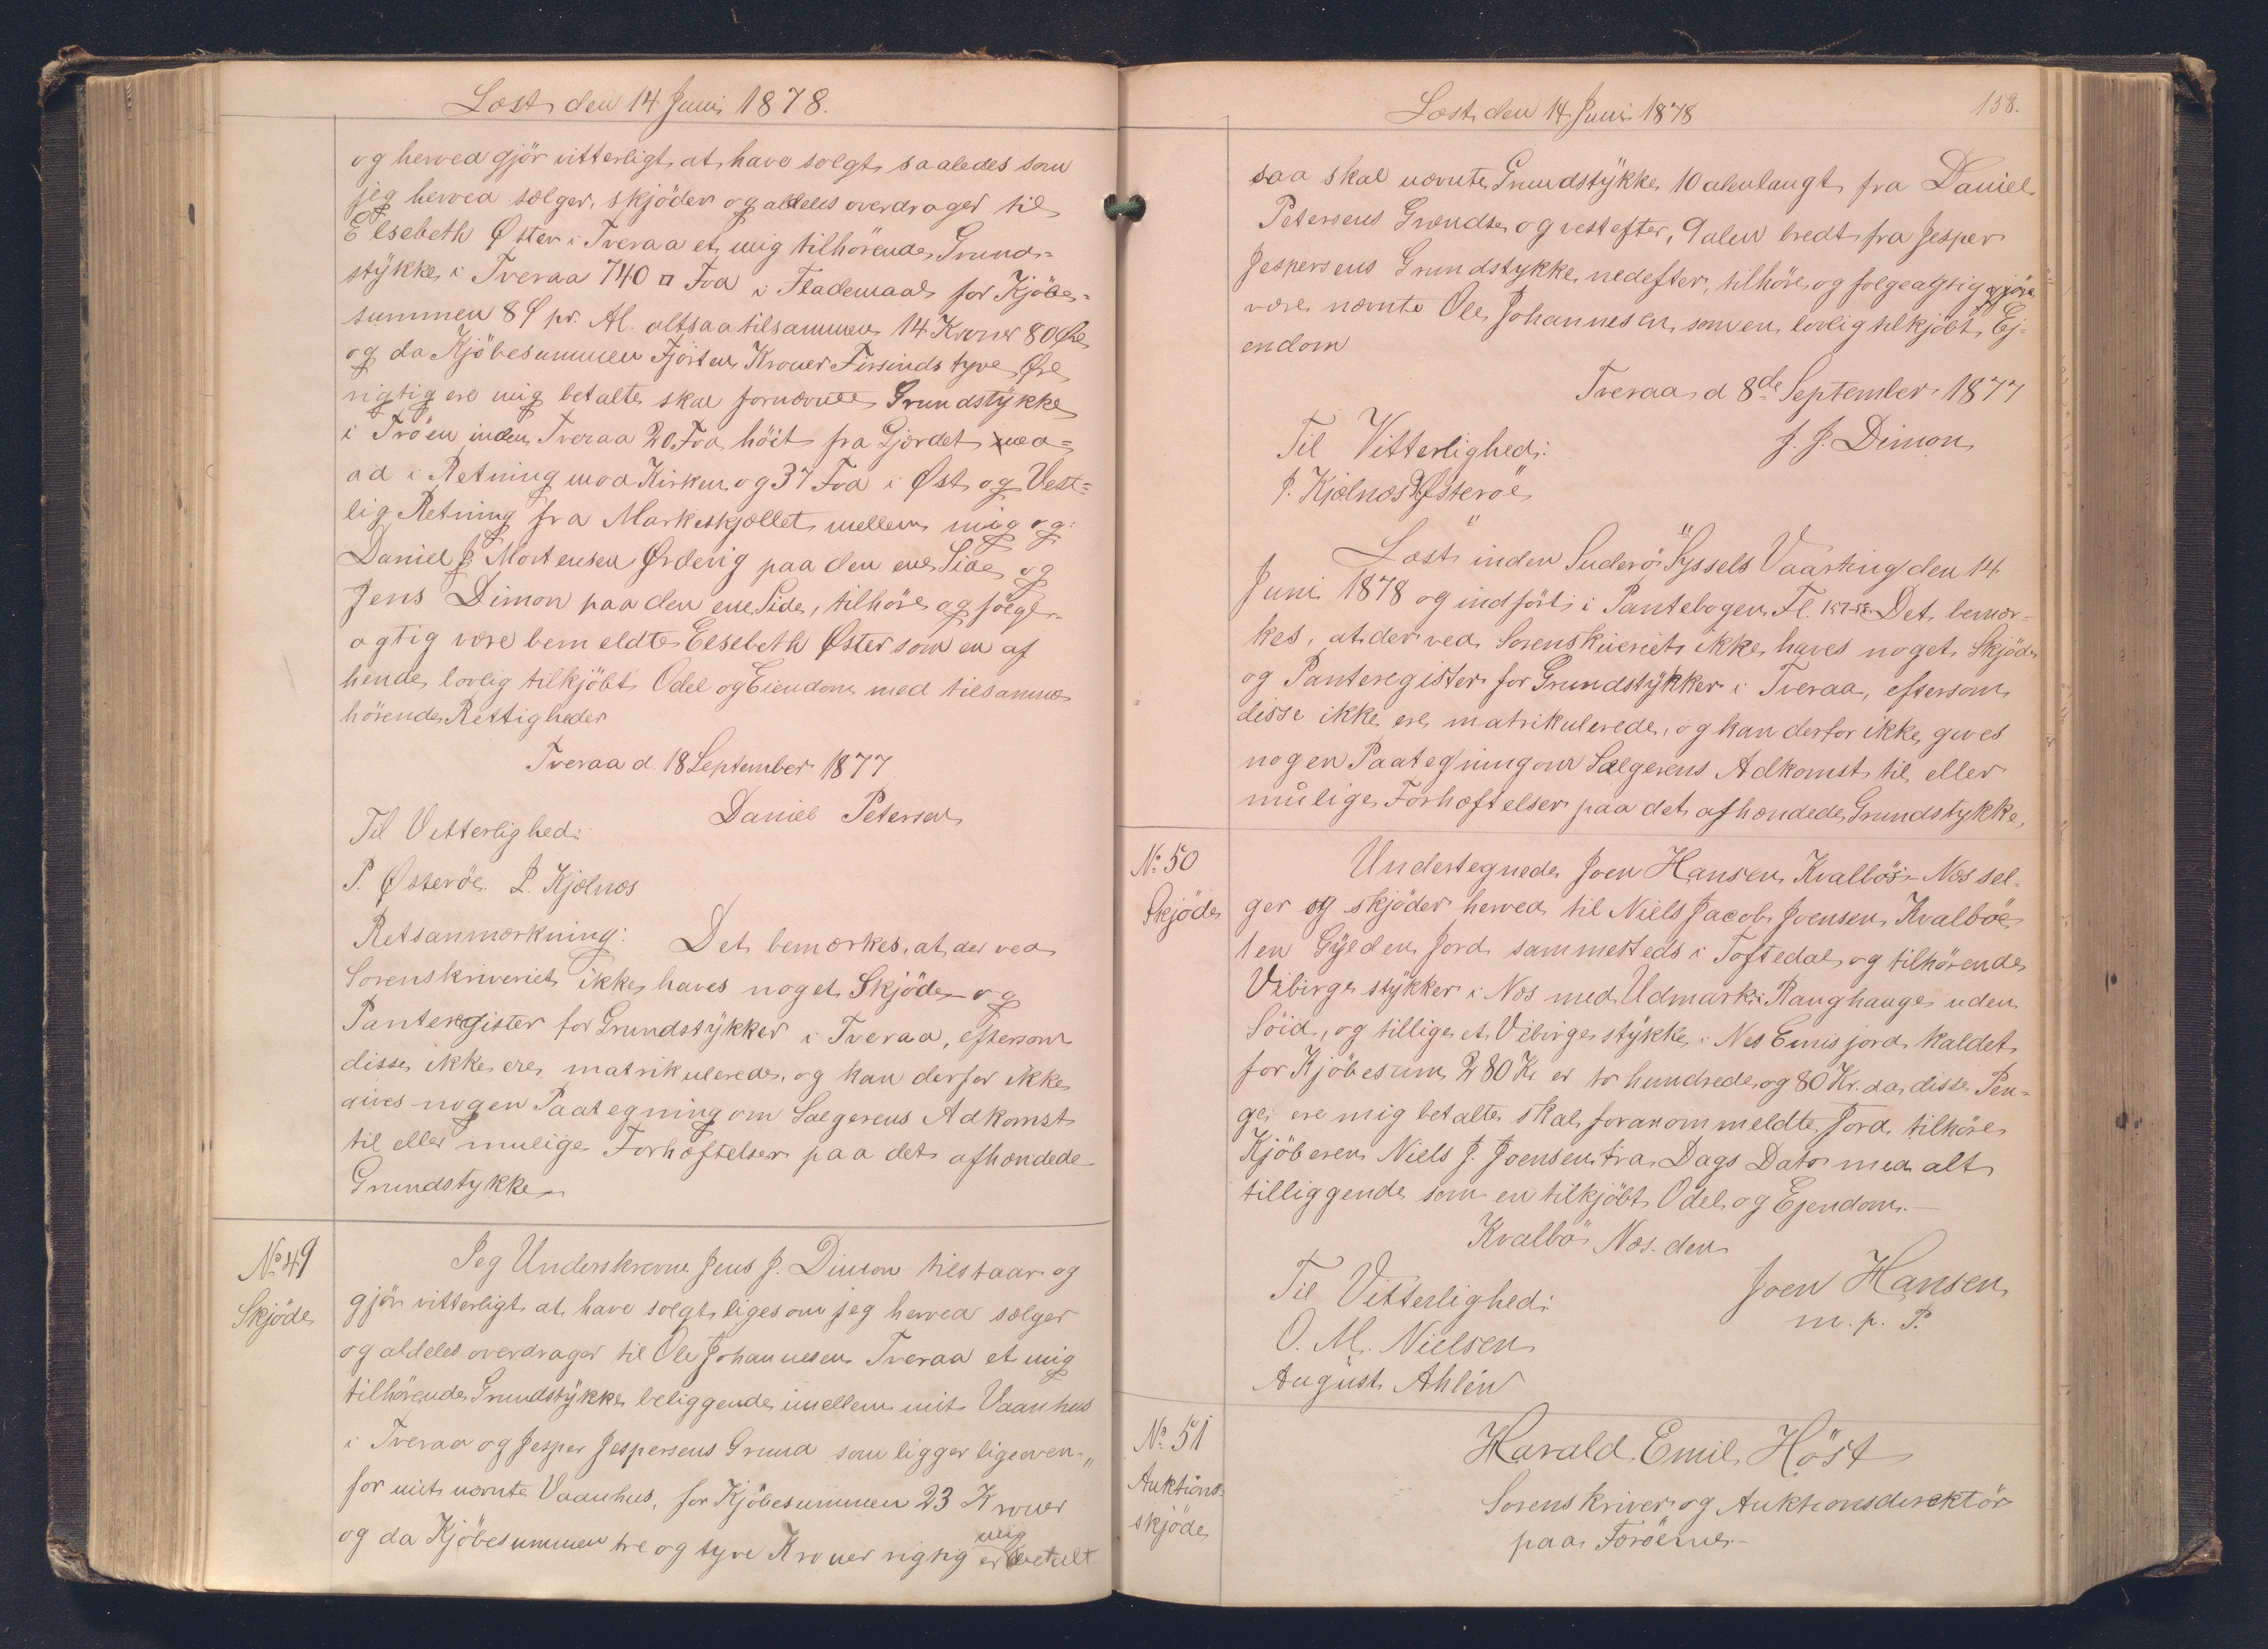 Læst den 14 Juni 1878.
og herved gjör vitterligt at have solgt saaledes som
jeg herved sælger, skjöder og aldeles overdrager til
Elsebeth Øster i Tveraa et mig tilhörende Grund-
stÿkke i Tveraa 740 □ Fod i Flademaal for Kjöbe-
summen 8 β pr. Al. altsaa tilsammen 14 Kroner 80 Øre
og da Kjöbesummen Fjorten Kroner Firsinds tyve Øre
rigtig ere mig betalte skal fornævnte Grundstÿkke
i Tröen inden Tveraa 20 Fod höit fra Gjærdet ned-
ad i Retning mod Kirken og 37 Fod i Øst og Vest-
lig Retning fra Markeskjællet mellem mig og
Daniel J. Mortensen Ørdevig paa den ene Side og
Jens Dimon paa den ene Side, tilhöre og fölge-
agtig være bemeldte Elsebeth Øster som en af
hende lovlig tilkjöbt Odel og Eiendom med tilsamme
hörende Rettigheder
Tveraa d. 18 September 1877
Daniel Petersen
Til Vitterlighed:
P. Østeröe. P. Kjælnæs
Retsanmærkning: Det bemærkes, at der ved
Sorenskriveriet ikke haves noget Skjöde- og
Panteregister for Grundstÿkker i Tveraa, eftersom
disse ikke ere matrikulerede, og kan derfor ikke
gives nogen Paategning om Sælgerens Adkomst
til eller mulige Forhæftelser paa det afhændede
Grundstykke
No 49
Skjöde
Jeg Underskrevne Jens J. Dimon tilstaar og
gjör vitterligt at have solgt ligesom jeg herved sælger
og aldeles overdrager til Ole Johannesen Tveraa et mig
tilhörende Grundstÿkke beliggende imellem mit Vaanhus
i Tveraa og Jesper Jespersens Grund som ligger ligeoven-
for mit nævnte Vaanhus, for Kjöbesummen 23 Kroner
og da Kjöbesummen tre og tyve Kroner rigtig er mig betalt
Læst den 14 Juni 1878
158.
saa skal nævnte Grundstÿkke 10 alen langt fra Daniel
Petersens Grændse og vestefter, 9 alen bredt fra Jesper
Jespersens Grundstykke nedefter, tilhöre og fölgeagtig gjöre
være nævnte Ole Johannesen som en lovlig tilkjöbt Ej-
endom
Tveraa d 8de September 1877
J. J. Dimon
Til Vitterlighed:
P. Kjælnæs P Österöe
Læst inden Suderö Sÿssels Vaarting den 14
Juni 1878 og indfört i Pantebogen Fl. 157-58. Det bemær-
kes, at der ved Sorenskriveriet ikke haves noget Skjöde
og Panteregister for Grundstÿkker i Tveraa, eftersom
disse ikke ere matrikulerede, og kan derfor ikke gives
nogen Paategning om Sælgerens Adkomst til eller
mulige Forhæftelser paa det afhændede Grundstykke,
No 50
Skjöde
Undertegnede Joen Hansen Kvalbö: Næs sæl-
ger og skjöder herved til Niels Jacob Joensen Kvalböe
1 en Gÿlden Jord sammesteds i Toftedal og tilhörende
Vibirge stÿkker i Næs med Udmark i Ranghauge uden
Söid, og tillige et Vibirge stÿkke i Nes Emisjord kaldet
for Kjöbesum 280 Kr er to hundrede og 80 Kr. da disse Pen-
ge ere mig betalte skal foranommeldte Jord tilhöre
Kjöberen Niels J. Joensen fra Dags Dato med alt
tilliggende som en tilkjöbt Odel og Ejendom.-
Kvalbö Næs. den
Joen Hansen
m. p. P.
Til Vitterlighed:
O. M. Nielsen
August Ahlén
No 51
Auktions-
skjöde
Harald Emil Höst
Sorenskriver og Auktionsdirektör
paa Færöerne.-